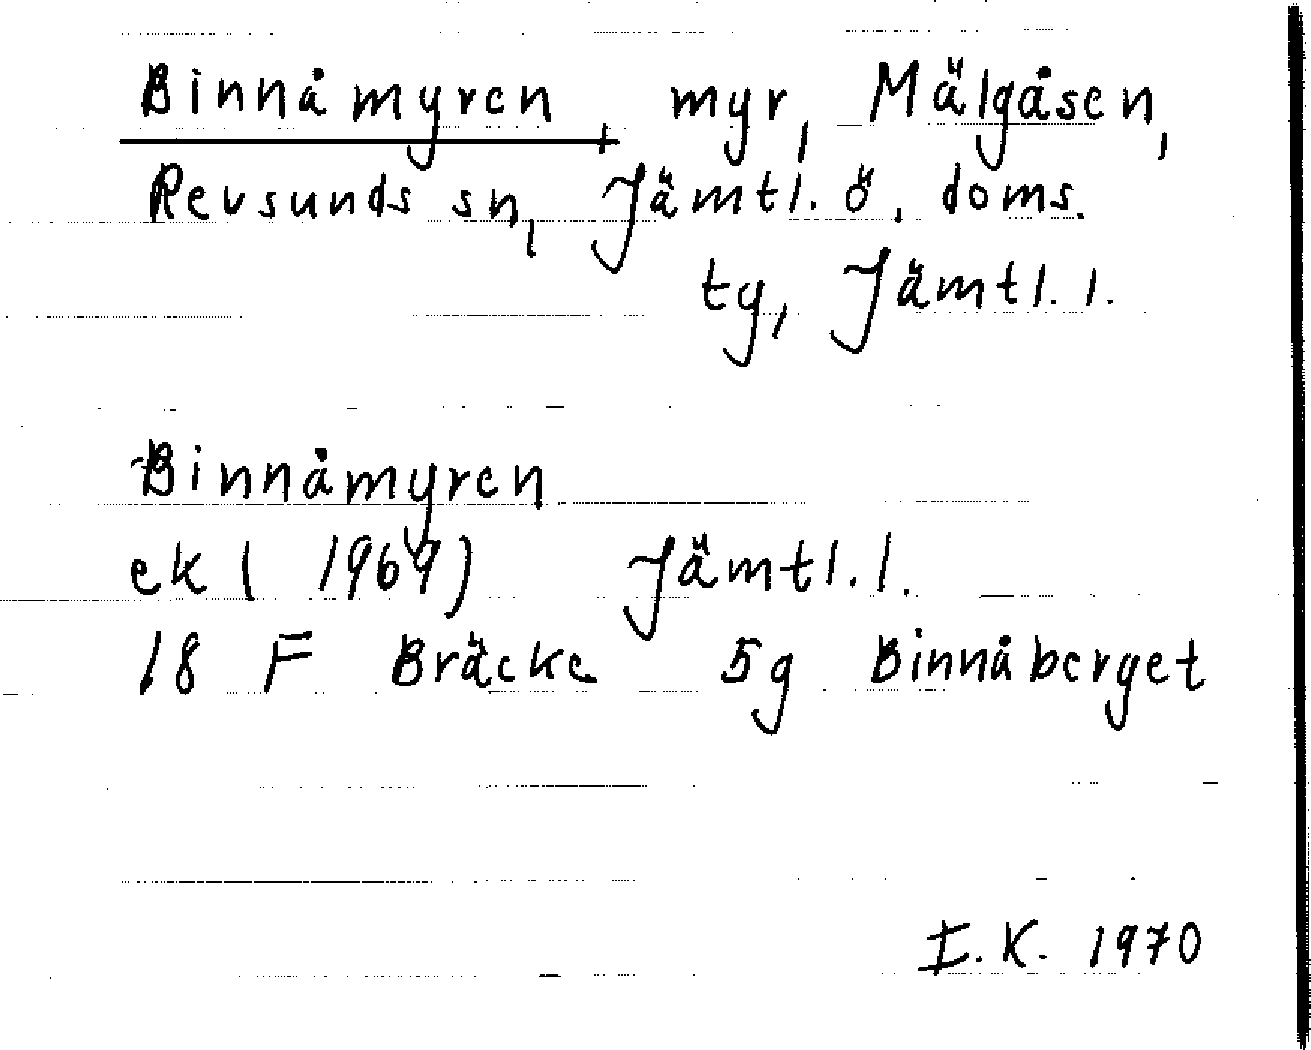 Binnåmyren, myr, Mälgåsen,
Revsunds sn, Jämtl. ö. doms.
ty, Jämtl. l.
Binnåmyren
ek ( 1969) Jämtl. l.
18 F Bräcke 5g Binnåberget
I. K. 1970